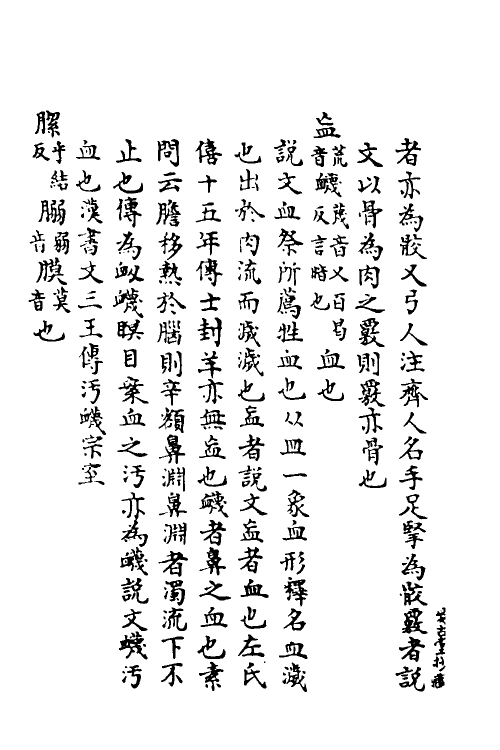 者亦為骹又弓人注齊人名手足掔為骹覈者説
文以骨為肉之覈則覈亦骨也
衁荒音衊蔑音又百曷反言時也血也
説文血祭所薦牲血也从皿一象血形釋名血濊
也出於肉流而濊濊也衁者説文衁者血也左氏
僖十五年傳士刲羊亦無衁也衊者鼻之血也素
問云膽移熱於腦則辛頞鼻淵鼻淵者濁流下不
止也傳為衄衊瞑目案血之汚亦為衊説文衊汚
血也漢書文三王傳汚衊宗室
乎結反弱音膜莫音也